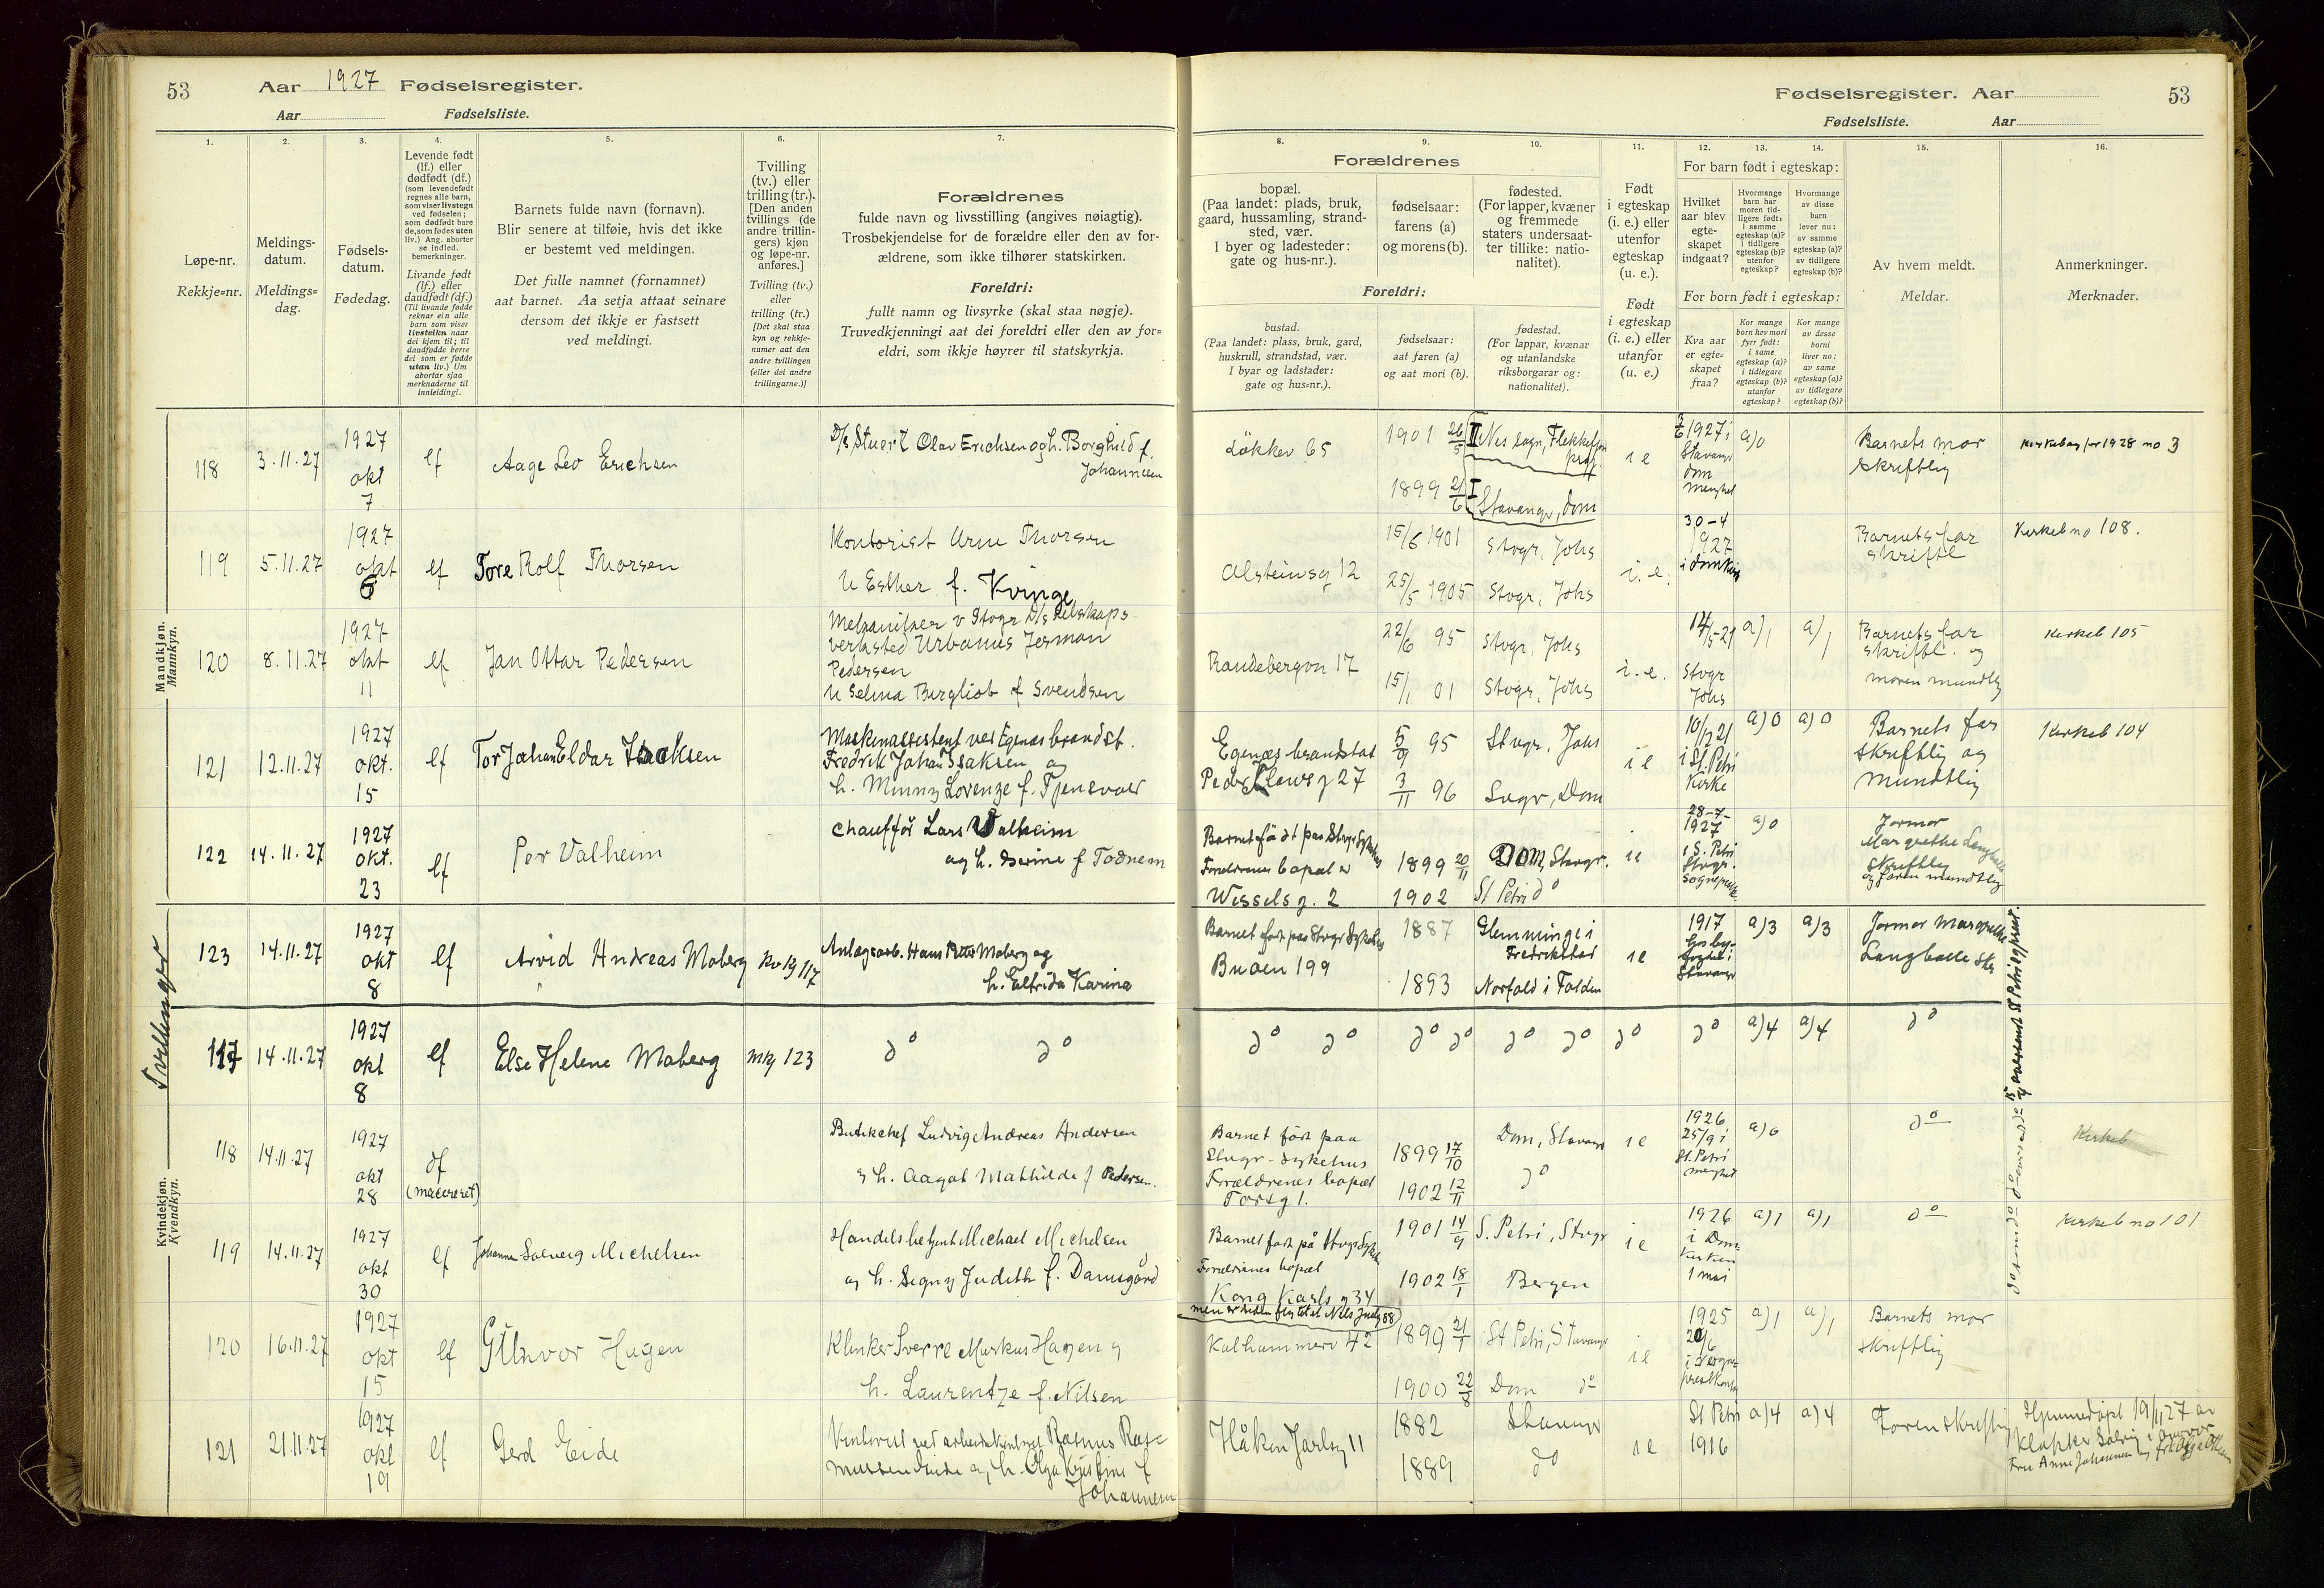 53
Aar 1927 Fødselsregister.
Aar Fødselsliste.
1.
Løpe-nr.
Rekkje=nr.
2.
Meldings-
datum.
Meldings=
dag.
3.
Fødsels-
datum.
Fødedag.
4.
Levende født
(lf.) eller
dødfødt (df.)
(som levendefødt
regnes alle barn,
som viser livstegn
ved fødselen;
som dødfødt bare
de, som fødes uten
liv.) Ang. aborter
se indled.
bemerkninger.
Livande født
(lf.) eller
daudfødt (df.)
(Til livande fødde
reknar ein alle
barn som viser
livsteikn naar
dei kjem til; til
daudfødde berre
dei som er fødde
utan liv.) Um
abortar sjaa
merknaderne til
innleidingi.
5.
Barnets fulde navn (fornavn).
Blir senere at tilføie, hvis det ikke
er bestemt ved meldingen.
Det fulle namnet (fornamnet)
aat barnet. Aa setja attaat seinare
dersom det ikkje er fastsett
ved meldingi.
6.
Tvilling
(tv.) eller
trilling (tr.).
[Den anden
tvillings (de
andre trillin-
gers) kjøn
og løpe-nr.
anføres.]
Tvilling (tv.)
eller
trilling (tr.)
[Det skal staa
kyn og rekkje-
numer aat den
andre tvillingen
(eller dei andre
trillingarne.)]
7.
Forældrenes
fulde navn og livsstilling (angives nøiagtig).
Trosbekjendelse for de forældre eller den av for-
ældrene, som ikke tilhører statskirken.
Foreldri:
fullt namn og livsyrke (skal staa nøgje).
Truvedkjenningi aat dei foreldri eller den av for=
eldri, som ikkje høyrer til statskyrkja.
Mandkjøn.
Mannkyn.
118
3.11.27
1927
okt
7
lf
Aage Leo Erichsen
D/s Stuert Olav Erichsen og h. Borghild f.
Johannesen
119
5.11.27
1927
okt
6
lf
Tore Rolf Thorsen
Kontorist Arne Thorsen
h Esther f. Kvinge
120
8.11.27
1927
okt
11
lf
Jan Ottar Pedersen
Mekaniker v Stvgr D/s selskaps
verksted Urbanus Jerman
Pedersen
h Selma Bergliot f Svendsen
121
12.11.27
1927
okt.
15
lf
Tor Johan Eldar Isaksen
Maskinassistent ved Egenæs brandst.
Fredrik Johan Isaksen og
h. Minny Lorenze f. Tjensvoll
122
14.11.27
1927
okt.
23
lf
Per Valheim
Chauffør Lars Valheim
og h. Serine f Todnem
Tvillinger
123
14.11.27
1927
okt
8
lf
Arvid Andreas Moberg
kv kj 117
Anlægsarb. Hans Petter Moberg og
h. Elfrida Karina
117
14.11.27
1927
okt
8
lf
Else Helene Moberg
mkj 123
do do
Kvindekjøn.
Kvendkyn.
118
14.11.27
1927
okt
28
df
(macereret)
Butikchef Ludvig Andreas Andersen
h. Aagot Mathilde f Pedersen.
119
14.11.27
1927
okt
30
lf
Johanne Solveig Michelsen
Handelsbetjent Michael Michelsen
og h. Signy Judith f. Damsgård
120
16.11.27
1927
okt
15
lf
Gunvor Hagen
Klinker Sverre Markus Hagen
h. Laurentze f. Nilsen
121
21.11.27
1927
okt
19
lf
Gerd Eide
Rasmus Ras-
mussen Eide og h. Olga Kristine f
Johannesen
Fødselsregister. Aar
53
Fødselsliste. Aar
8.
Forældrenes
bopæl.
(Paa landet: plads, bruk,
gaard, hussamling, strand-
sted, vær.
I byer og ladesteder:
gate og hus-nr.).
Foreldri:
bustad.
(Paa landet: plass, bruk, gard,
huskrull, strandstad, vær.
I byar og ladstader:
gate og hus=nr.).
9.
fødselsaar:
farens (a)
og morens (b).
fødselsaar:
aat faren (a)
og aat mori (b).
10.
fødested.
(For lapper, kvæner
og fremmede
staters undersaat-
ter tillike: natio-
nalitet).
fødestad.
(For lappar, kvænar
og utanlandske
riksborgarar og:
nationalitet).
11.
Født
i egteskap
(i. e.) eller
utenfor
egteskap
(u. e.).
Født
i egteskap
(i. e.) eller
utanfor
(u. e.)
For barn født i egteskap:
12.
Hvilket
aar blev
egte-
skapet
indgaat?
For born født i egteskap:
Kva aar
er egte=
skapet
fraa?
13.
Hvormange
barn har
moren tid-
ligere født:
i samme
egteskap (a)?
i tidligere
egteskap (b)?
utenfor
egteskap?
Kor mange
born hev mori
fyrr født:
i same
egteskap (a)?
i tidlegare
egteskap (b)?
utanfor
egteskap?
14.
Hvormange
av disse
barn
lever nu:
av samme
egteskap (a)?
av tidligere
egteskap (b)?
Kor mange
av desse
borni
liver no:
av same
egteskap (a)?
av tidlegare
egteskap (b)?
15.
Av hvem meldt.
Meldar.
16.
Anmerkninger.
Merknader.
Løkkev 65
1901 26/5
II Nes sogn, Flekkefjord
1899 21/6
I Stavanger, Dom
i e
1927 i
Stavanger
dom
a) 0
Barnets mor
skriftlig
Kirkebog for 1928 no 3
Olsteinsg 12
15/6 1901
Stvgr, Johs
25/5 1905
Stvgr, Johs
i. e.
30-4
1927
i domkirk
Barnets far
skriftl
Kirkeb no 108.
Randebergvn 17
22/6 95
Stvgr, Johs
15/1 01
Stvgr, Johs
i. e.
14/5-21
Stvgr
Johs
a) 1
a) 1
Barnets far
skriftl. og
moren mundtlig
Kirkeb 105
Egenæs brandstat
Peder Claus g 27
5/9 95
Stvgr, Johs
3/11 96
Svgr, Dom
i e
21
i St. Petri
Kirke
a) 0
a) 0
Barnets far
skriftlig og
mundtlig
Kirkeb 104
Barnet født paa Stvgr Sykehus
Forældrenes bopæl er
Wessels g. 2
1899 20/11
Dom, Stvgr.
1902
St Petri do
i e
28-7-
1927
i S. Petri
Stvgr.
a) 0
Jormor
Margrethe Langballe
skriftlig
og faren mundtlig
Barnet født paa Stvgr Sykehus
Buøen 199
1887
Glemminge i
Fredrikstad
1893
Norfold i Folden
i e
1917
Stavanger
a) 3
a) 3
Jormor Margrethe
Langballe skr
do do
do do
do do
do
do
a) 4
a) 4
do
Barnet født paa
Stvgr-Sykehus
Forældrenes bopæl
Torsg 1.
1899 17/10
Dom, Stavanger
1902 12/11
do
i e
1926
25/9 i
St. Petri
menghet
a) 0
do
Kirkeb
Barnet født på Stvgr Sykeh
Forældrenes bopæl
Kong Karls g 34
men er siden flyttet til Nils Juelsg 88
1901 14/9
S. Petri, Stvgr
1902 18/1
Bergen
i e
1926
i Dom-
kirken
1 mai
a) 1
a) 1
do
Kirkeb no 101
Kalhammerv 42
1899 21/1
St Petri, Stavanger
1900 22/8
Dom do
i e
1925
20/6
a) 1
a) 1
Barnets mor
skriftlig
Håkon Jarlsg 11
1882
Stavanger
1889
do
i e
St Petri
1916
a) 4
a) 4
Faren skriftlig
Hjemmedøpt 19/11 27 av